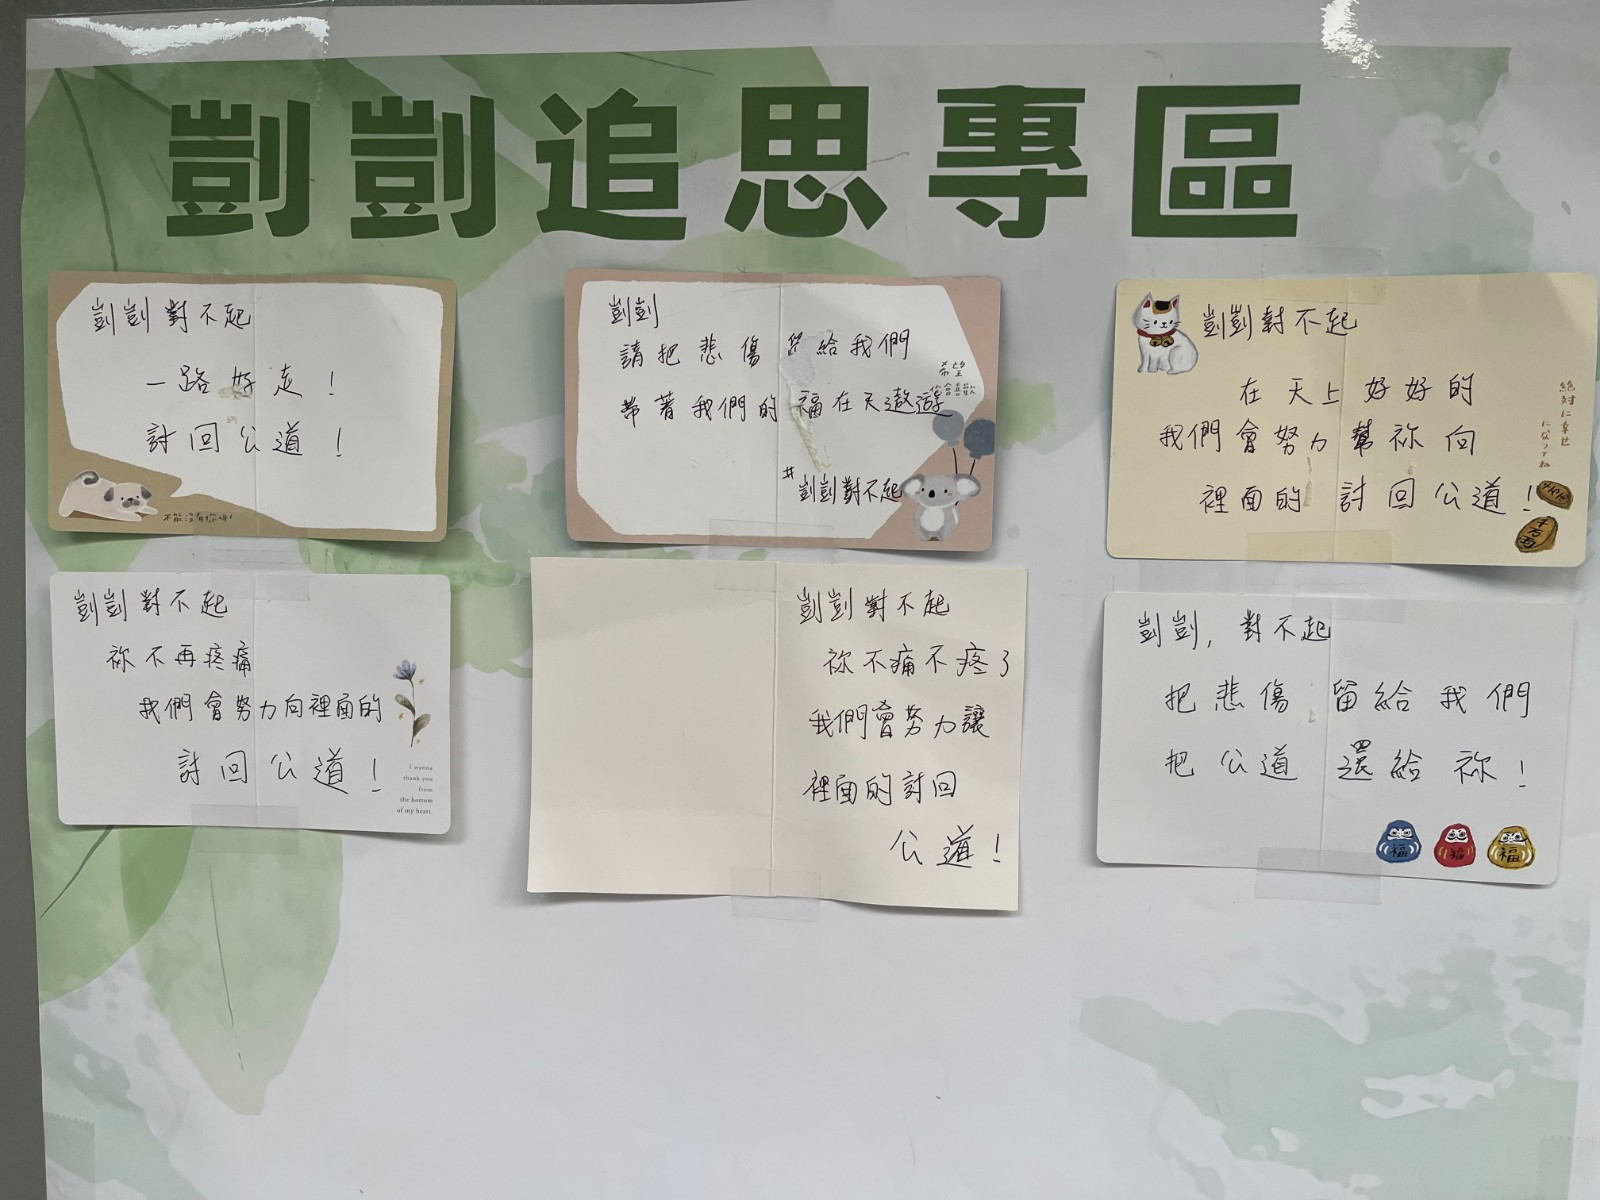 剴剴追思專區
剴剴對不起
一路好走！
討回公道！
剴剴
請把悲傷留給我們
帶著我們的福在天遨遊
希望
你會喜歡
#剴剴對不起
剴剴對不起
在天上好好的
我們會努力幫祢向
裡面的討回公道！
絶対に幸せ
になってね
千万両
剴剴對不起
祢不再疼痛
我們會努力向裡面的
討回公道！
I wanna
thank you
from
the bottom
of my heart.
剴剴對不起
祢不痛不疼了
我們會努力讓
裡面的討回
公道！
剴剴，對不起
把悲傷留給我們
把公道還給祢！
福
福
福